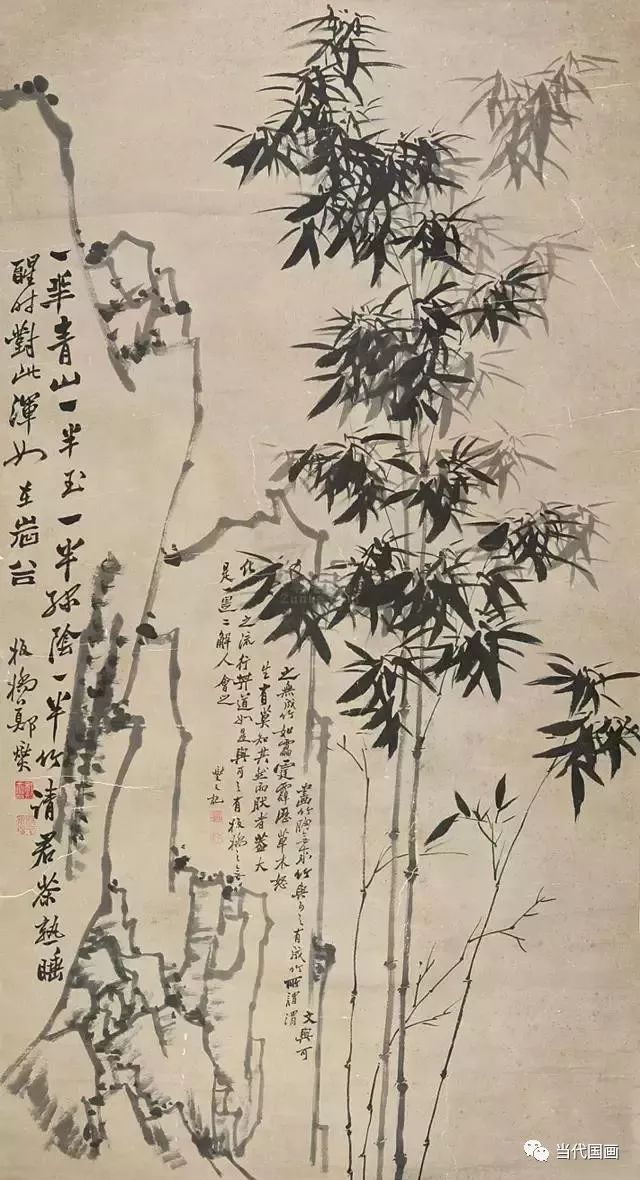 一半青山一半玉一半綠陰一半竹請君茶熟睡
醒时對此渾如在岩谷
板橋鄭燮
文與可
畫竹胸 成竹與可之有成竹所謂渭
之無成竹如雷霆霹靂草木怒
生有莫知其然而然者蓋大
化之流行其道如是與可之有板橋之
是一是二解人會之
燮又記
当代国画